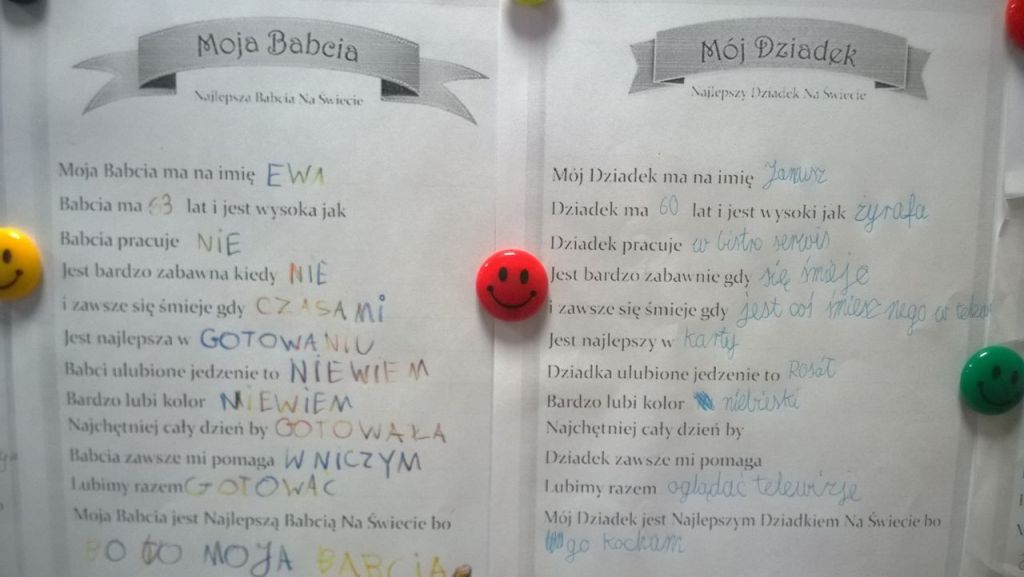 Moja Babcia
Najlepsza Babcia Na Świecie
Moja Babcia ma na imię EWA
Babcia ma 63 lat i jest wysoka jak
Babcia pracuje NIE
Jest bardzo zabawna kiedy NIE
i zawsze się śmieje gdy CZASAMI
Jest najlepsza w GOTOWANIU
Babci ulubione jedzenie to NIEWIEM
Bardzo lubi kolor NIEWIEM
Najchętniej cały dzień by GOTOWAŁA
Babcia zawsze mi pomaga W NICZYM
Lubimy razem GOTOWAĆ
Moja Babcia jest Najlepszą Babcią Na Świecie bo
BO TO MOJA BABCIA
Mój Dziadek
Najlepszy Dziadek Na Świecie
Mój Dziadek ma na imię Janusz
Dziadek ma 60 lat i jest wysoki jak żyrafa
Dziadek pracuje w bistro serwis
Jest bardzo zabawnie gdy się śmieje
i zawsze się śmieje gdy jest coś śmiesznego w telew
Jest najlepszy w karty
Dziadka ulubione jedzenie to Rosół
Bardzo lubi kolor niebieski
Najchętniej cały dzień by
Dziadek zawsze mi pomaga
Lubimy razem oglądać telewizje
Mój Dziadek jest Najlepszym Dziadkiem Na Świecie bo
go kocham